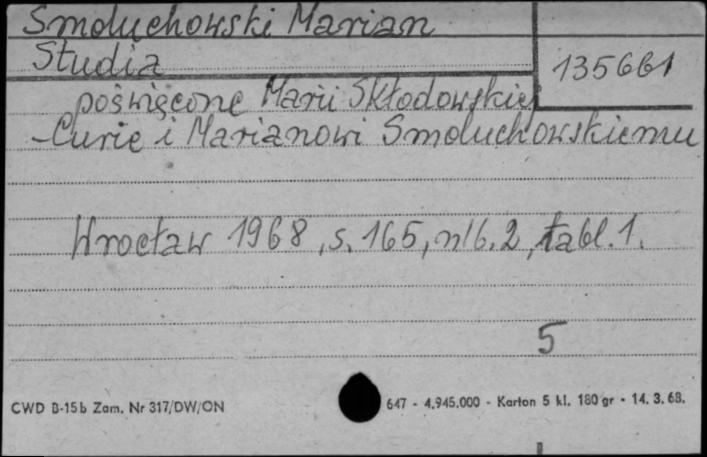 Smoluchowski Marian
Studia
135661
poświęcone Marii Skłodowskiej
-Curie i Marianowi Smoluchowskiemu
Wrocław 1968, s. 165, nlb. 2, tabl. 1.
5
CWD B-15b Zam. Nr 317/DW/ON
647 - 4.945.000 - Karton 5 kl. 180 gr - 14. 3. 68.